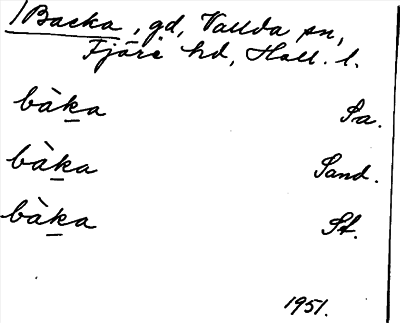 Backa, gd, Vallda sn,
Fjäre hd, Hall. l.
bàka Sa.
bàka Sand.
bàka St.
1951.